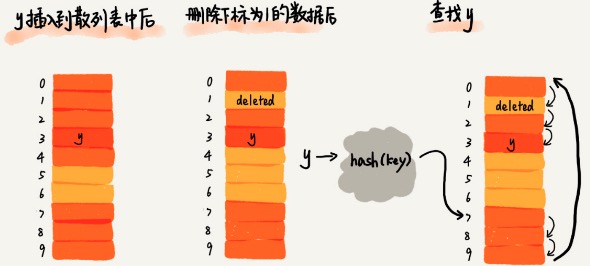 y插入到散列表中后
0
1
2
3 y
4
5
6
7
8
9
删除下标为1的数据后
0
1 deleted
2
3 y
4
5
6
7
8
9
y
hash(key)
查找y
0
1 deleted
2
3 y
4
5
6
7
8
9